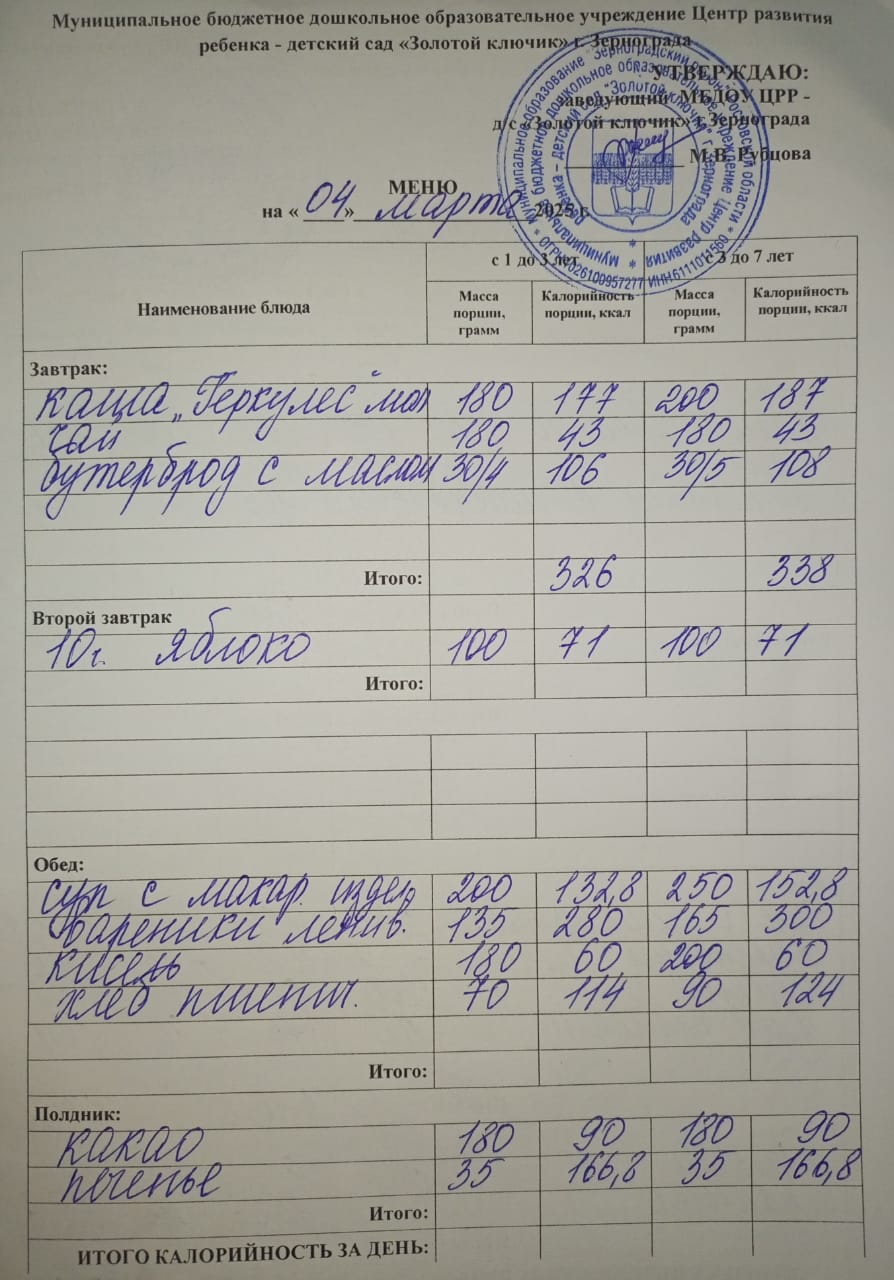 Муниципальное бюджетное дошкольное образовательное учреждение Центр развития
ребенка - детский сад «Золотой ключик» г. Зернограда
УТВЕРЖДАЮ:
заведующий МБДОУ ЦРР -
д/с «Золотой ключик» г.Зернограда
М.В. Рубцова
МЕНЮ
на « 04 » марта 2025 г.
Наименование блюда с 1 до 3 лет с 3 до 7 лет
Масса порции, грамм Калорийность порции, ккал Масса порции, грамм Калорийность порции, ккал
Завтрак:
каша „Геркулес" мол 180 177 200 187
чай 180 43 180 43
бутерброд с маслом 30/4 106 30/5 108
Итого: 326 338
Второй завтрак
10г. яблоко 100 71 100 71
Итого:
Обед:
суп с макар. издел. 200 132,8 250 152,8
вареники ленив. 135 280 165 300
кисель 180 60 200 60
хлеб пшенич. 70 114 90 124
Итого:
Полдник:
какао 180 90 180 90
печенье 35 166,8 35 166,8
Итого:
ИТОГО КАЛОРИЙНОСТЬ ЗА ДЕНЬ: